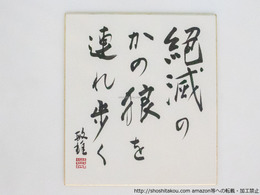 絶滅の
かの狼を
連れ歩く
敏雄
http://shoshitakou.com amazon等への転載・加工禁止